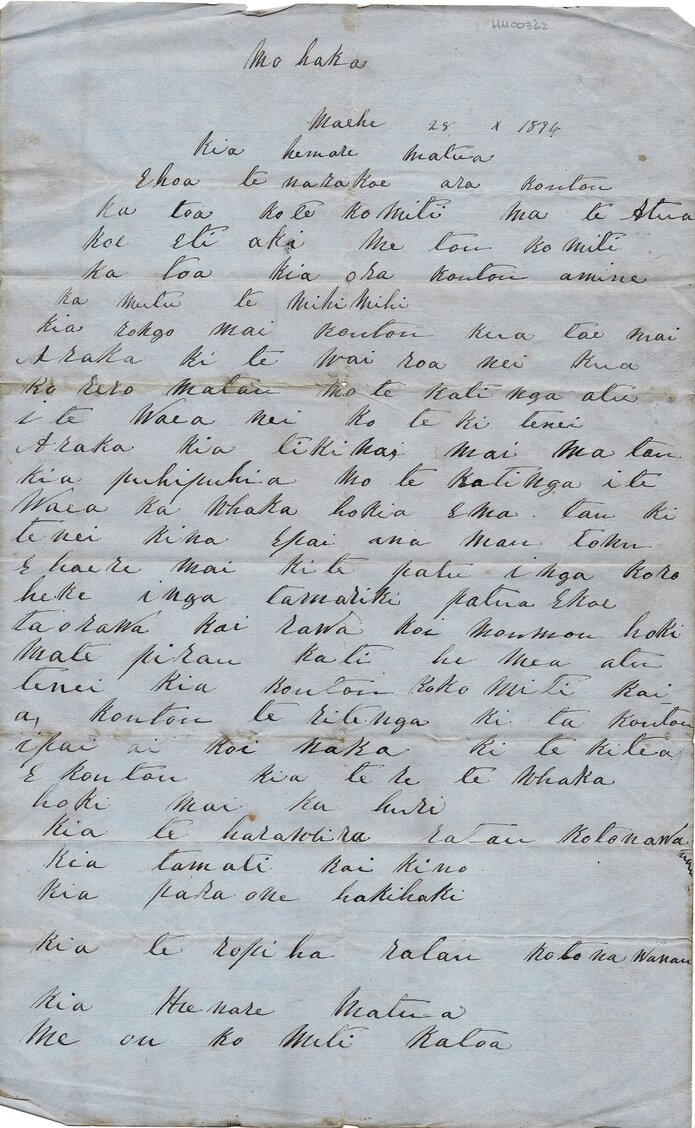 HM00362
Mo haka
Maehe 28 x 1894
Kia hemare matua
Ehoa te narakoe ara koutou
ka toa kote komiti ma te Atua
koe eti aki me tou komiti
ka toa kia ora koutou amine
ka mutu te mihi mihi
kia rongo mai koutou kua tae mai
Araka ki te wai roa nei kua
ko rero matau mo te kati nga atu
i te Waea nei ko te ki tenei
Araka kia tikinai mai ma tau
kia puhipuhia mo te katinga i te
Waea ka whaka hokia Ema tau ki
tenei kina Epai ana mau toku
E haere mai kite patu i nga koro
heke i nga tamariki patua Ekoe
taorawa kai rawa koi moumou hoki
mate pirau kati he mea atu
tenei kia koutou koko miti kai
a, koutou te ritenga ki ta koutou
ipai ai koi naka ki te kitea
E koutou kia te re te whaka
hoki mai ka huri
Kia te harawira ratau kotonawa
nau
Kia tamati kai kino
Kia paraone hakihaki
Kia te ropiha ratau koto na wanau
Kia Henare Matua
Me ou ko miti Katoa